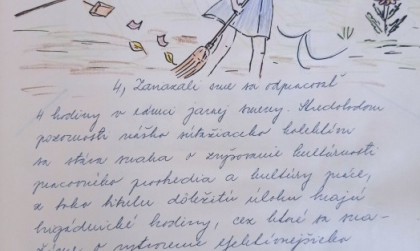 4, Zaviazali sme sa odpracovať
4 hodiny v rámci jarnej smeny. Stredobodom
pozornosti nášho súťažiaceho kolektívu
sa stáva snaha o zvyšovanie kultúrnosti
pracovného prostredia a kultúry práce,
z toho titulu dôležitú úlohu hrajú
brigádnické hodiny, cez ktoré sa sna-
žíme o vytvorenie efektívnejšieho